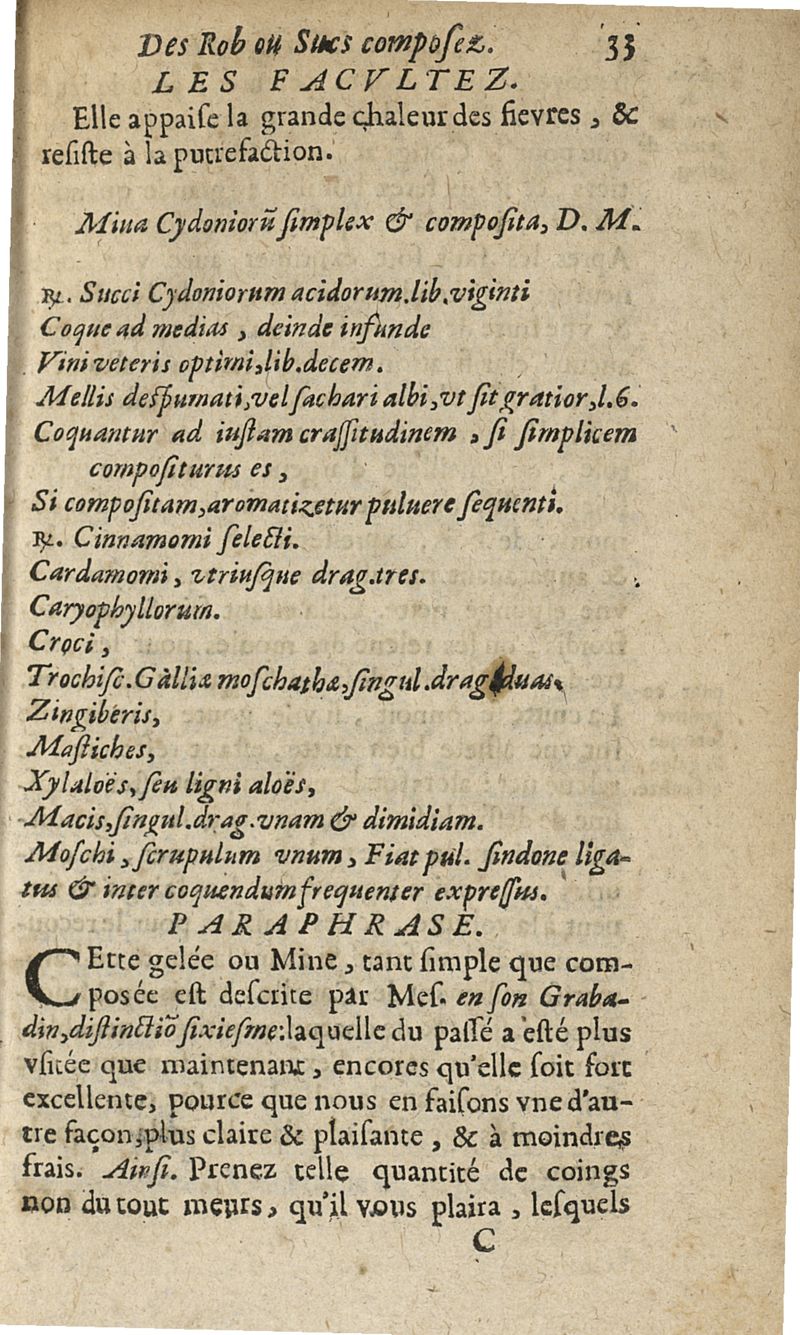 Des Rob ou Sucs compoſez. 33
LES FACVLTEZ.
Elle appaiſe la grande chaleur des fievres, &
reſiſte à la putrefaction.
Miua Cydoniorū ſimplex & compoſita, D. M.
℞. Succi Cydoniorum acidorum.lib.viginti
Coque ad medias, deinde infunde
Vini veteris optimi, lib.decem.
Mellis deſpumati,vel ſachari albi,vt ſit gratior,l.6.
Coquantur ad iuſtam craſſitudinem, ſi ſimplicem
compoſiturus es,
Si compoſitam,aromatizetur puluere ſequenti.
℞. Cinnamomi ſelecti.
Cardamomi, vtriuſque drag.tres.
Caryophyllorum.
Croci,
Trochiſc.Galliæ moſchathæ,ſingul.drag.duas.
Zingiberis,
Maſtiches,
Xylaloës, ſeu ligni aloës,
Macis,ſingul.drag.vnam & dimidiam.
Moſchi, ſcrupulum vnum, Fiat pul. ſindone liga-
tus & inter coquendum frequenter expreſſus.
PARAPHRASE.
CEtte gelée ou Mine, tant ſimple que com-
poſée eſt deſcrite par Meſ. en ſon Graba-
din,diſtinctiō ſixieſme:laquelle du paſſé a eſté plus
vſitée que maintenant, encores qu'elle ſoit fort
excellente, pource que nous en faiſons vne d'au-
tre façon,plus claire & plaiſante, & à moindres
frais. Ainſi. Prenez telle quantité de coings
non du tout meurs, qu'il vous plaira, leſquels
C